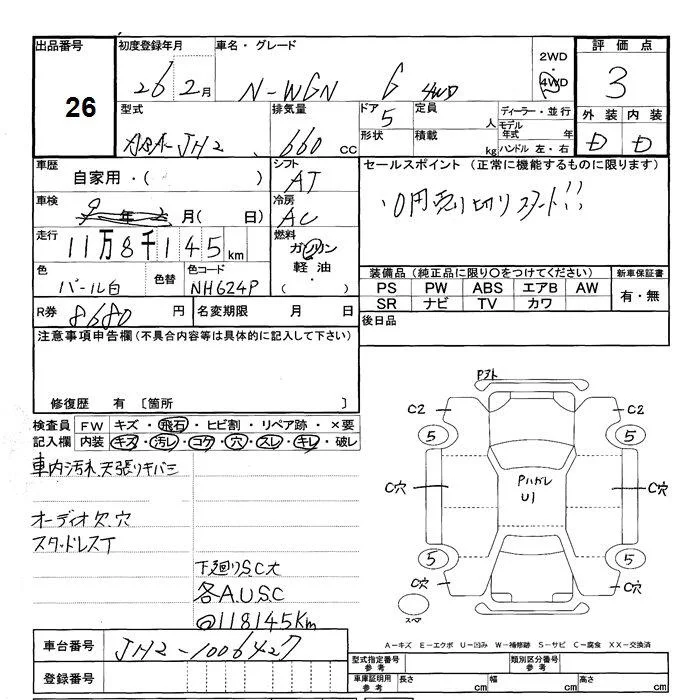 出品番号 26
初度登録年月 26 2月
車名・グレード N-WGN G 4WD
2WD 4WD
評価点 3
型式 DBA-JH2
排気量 660 CC
ドア 5 形状
定員 人 積載 kg
ディーラー・並行
モデル年式 年
ハンドル 左・右
外装 内装
D D
車歴 自家用・( )
シフト AT
セールスポイント (正常に機能するものに限ります)
0円売り切りスタート!!
車検 9年2月( 日)
冷房 AC
走行 11万8千145km
燃料 ガソリン 軽油・ ( )
色 パール白 色替 色コード NH624P
装備品 (純正品に限り○をつけてください) 新車保証書
PS PW ABS エアB AW 有・無
SR ナビ TV カワ
R券 8680円 名変期限 月 日
後日品
注意事項申告欄(不具合内容等は具体的に記入して下さい)
修復歴 有 〔箇所 〕
検査員記入欄 FW キズ・飛石・ヒビ割・リペア跡・×要
内装 キズ・汚レ・コゲ・穴・スレ・キレ・破レ
車内汚れ 天張りキバミ
オーディオ欠.穴
スタッドレスT
下廻りS.C大
各A.U.S.C
@118145Km
Pヌト
C2 C2
5 5
Pハガレ
U1
C穴 C穴
5 5
C穴 C穴
スペア
A-キズ E-エクボ U-凹み W-補修跡 S-サビ C-腐食 XX-交換済
車台番号 JH2-1006427
型式指定番号 参考 類別区分番号 参考
登録番号
車庫証明用 参考 長さ cm 幅 cm 高さ cm